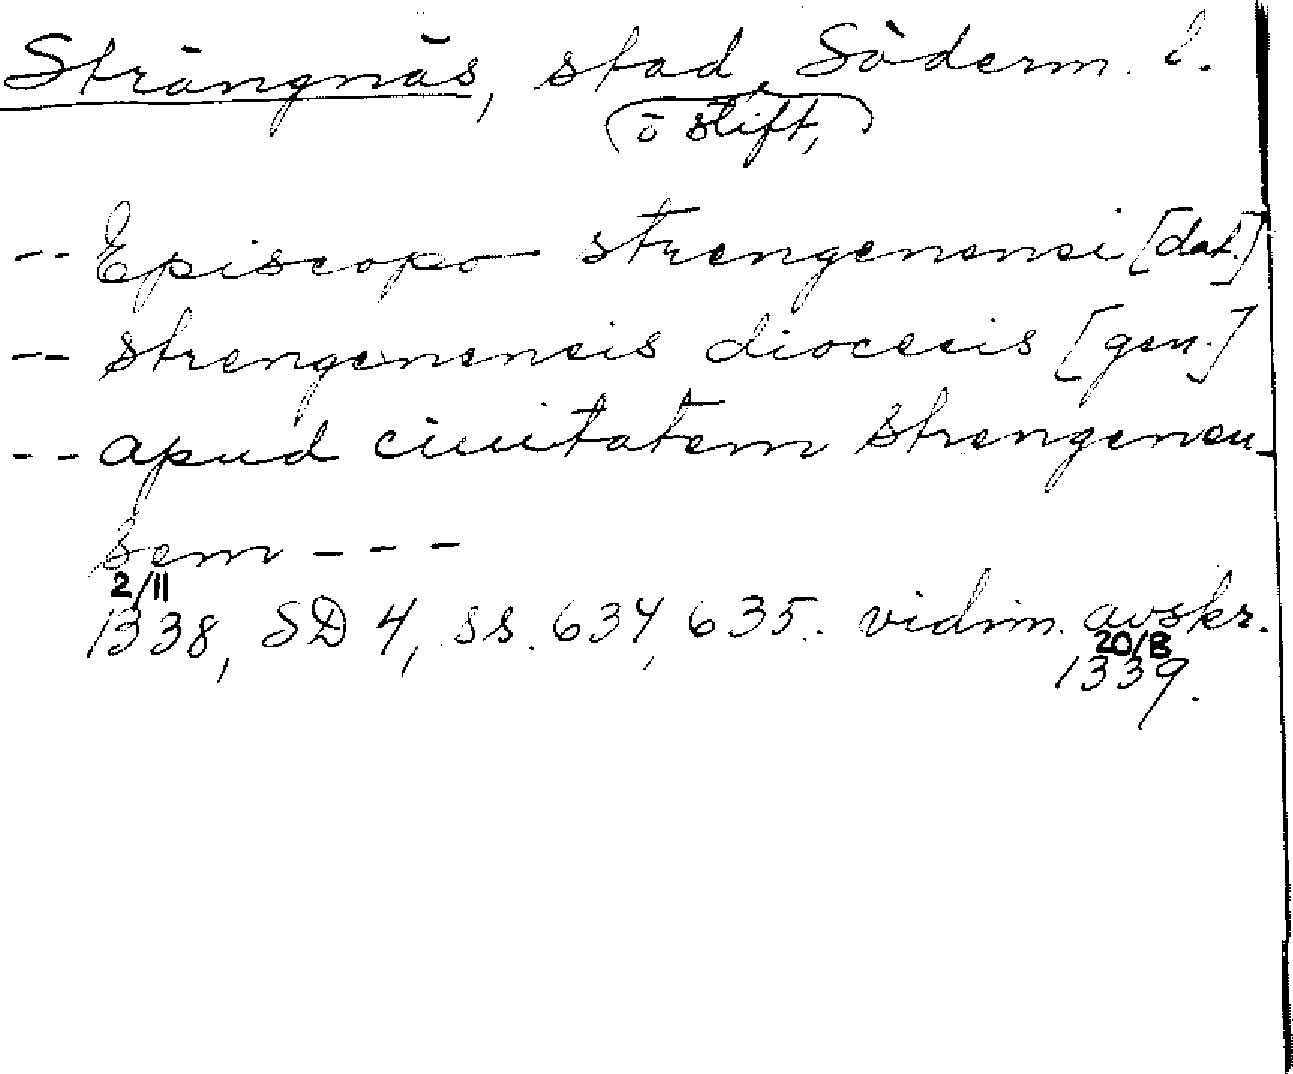 Strängnäs, stad, Söderm. l.
(o stift,)
-- Episcopo strengenensi [dat.]
-- strengenensis diocesis [gen.]
-- apud ciuitatem strengenen-
sem ---
2/11
1338, SD 4, ss. 634, 635. vidim. avskr.
20/8
1339.